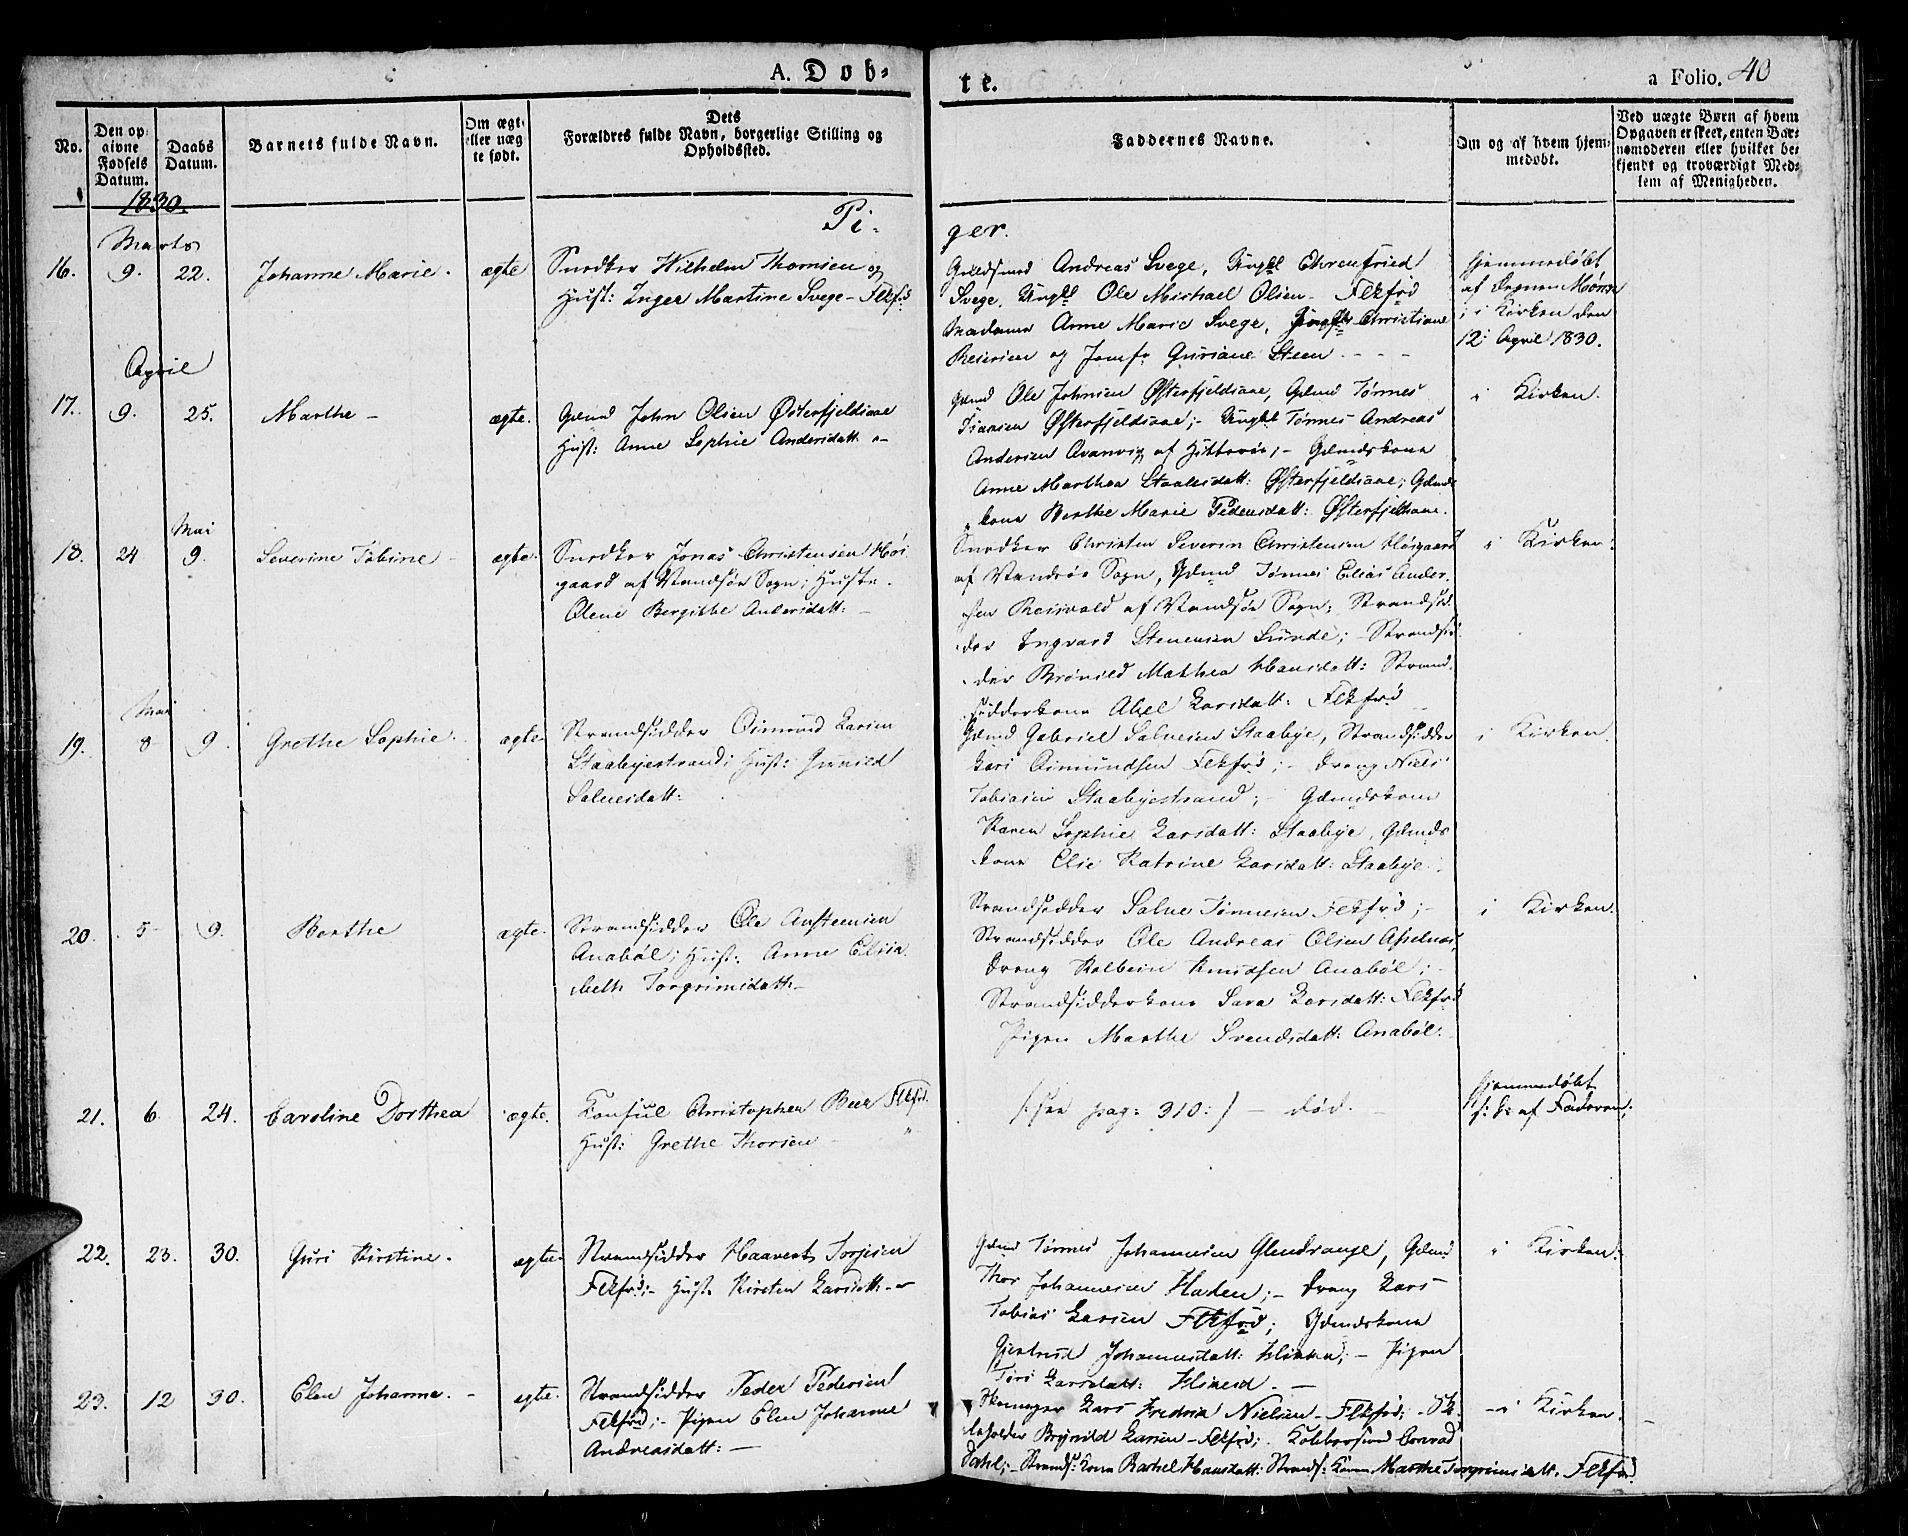 A. Døb-
te.
a Folio. 40
No.
Den op-
givne
Fødsels
Datum.
Daabs
Datum.
Barnets fulde Navn.
Om ægt-
eller uæg-
te født.
Dets
Forældres fulde Navn, borgerlige Stilling og
Opholdssted.
Faddernes Navne.
Om og af hvem hjem-
medøbt.
Ved uægte Børn af hvem
Opgaven er skeet, enten Bar-
nemoderen eller hvilket be-
kjendt og troværdigt Med-
lem af Menigheden.
1830.
Pi-
ger.
Marts
16. 9. 22. Johanne Marie. ægte
Snedker Wilhelm Thomsen og
Hust: Inger Martine Svege - Flkfrd
Guldsmed Andreas Svege, Ungkl Ehrenfried
Svege, Ungkl Ole Michael Olsen - Flkfrd
Madame Anne Marie Svege, Jomfr Christiane
Reiersen og Jomfr Guriane Steen - - -
Hjemmedøbt
af Degnen
i Kirken den
12 April 1830.
April
17. 9. 25. Marthe - ægte.
Gdmd John Olsen Østerfjeldsaae
Hust: Anne Sophie Andersdatt: -
Gdmd Ole Johnsen Østerfjeldsaae, Gdmd Tønnes
Østerfjeldsaae; - Ungkl Tønnes Andreas
Andersen af Hitterøe; - Gdmdskone
Anne Marthea Staalesdatt: Østerfjeldsaae; Gdmds
kone Berthe Marie Pedersdatt: Østerfjeldsaae.
i Kirken.
Mai
18. 24 9. Severine Tobine - ægte.
Snedker Jonas Christensen Høi
gaard af Vandsøe Sogn; Hustr.
Olene Bergithe Andersdatt: -
Snedker Christen Severin Christensen Høigaard
af Vandsøe Sogn, Gdmd Tønnes Elias Ander-
sen af Vandsøe Sogn; Strandsid
der Ingvard Stenersen Sunde; - Strandsid
der Brønild Mathea Hansdatt: Strand
sidderkone Abel Larsdatt: Flkfrd
i Kirken.
Mai
19. 8 9. Grethe Sophie. ægte
Strandsidder Osmund Larsen
Staabyestrand; Hust: Gunild
Salvesdatt:
Gdmd Gabriel Salvesen Staabye, Strandsidder
Lars Osmundsen Flkfrd; - Dreng Niels
Tobiasen Staabyestrand; - Gdmdskone
Karen Sophie Larsdatt: Staabye, Gdmds
kone Elie Katrine Larsdatt: Staabye.
i Kirken.
20. 5 9. Berthe ægte.
Strandsidder Ole Austensen
Anabøl; Hust: Anne Elisa
beth Torgrimsdatt. -
Strandsidder Salve Tønnesen Flkfrd; -
Strandsidder Ole Andreas Olsen
Dreng Kolbein Knudsen Anabøl; -
Strandsidderkone Sara Larsdatt: Flkfrd
Pigen Marthe Svendsdatt: Anabøl.
i Kirken.
21. 6 24. Caroline Dorthea ægte.
Konsul Christopher Beer Flkfrd.
Hust: Grethe Thorsen - "
/: see pag: 310: / - død. -
Hjemmedøbt
af Faderen:
22. 23. 30. Guri Kirstine. ægte.
Strandsidder Haavert Torjesen
Flkfrd; - Hust. Kirsten Larsdatt. -
Gdmd Tønnes Johannesen Glendrange, Gdmd
Thor Johannesen Fladen; - Dreng Lars
Tobias Larsen Flkfrd; Gdmdskone
Gjertrud Johannesdatt: - Pigen
Tøri Larsdatt: -
i Kirken.
23. 12 30. Elen Johanne. - ægte.
Strandsidder Peder Pedersen
Flkfrd; - Pigen Elen Johanne
Andreasdatt: -
Skomager Lars Fredrik Nielsen - Flkfrd; -
Brynild Larsen - Flkfrd; Kobbersmed Conrad
Dahl; - Strands: kone Rachel Hansdatt: Strands: kone Marthe Torgrimsdatt. Flkfrd.
- i Kirken.